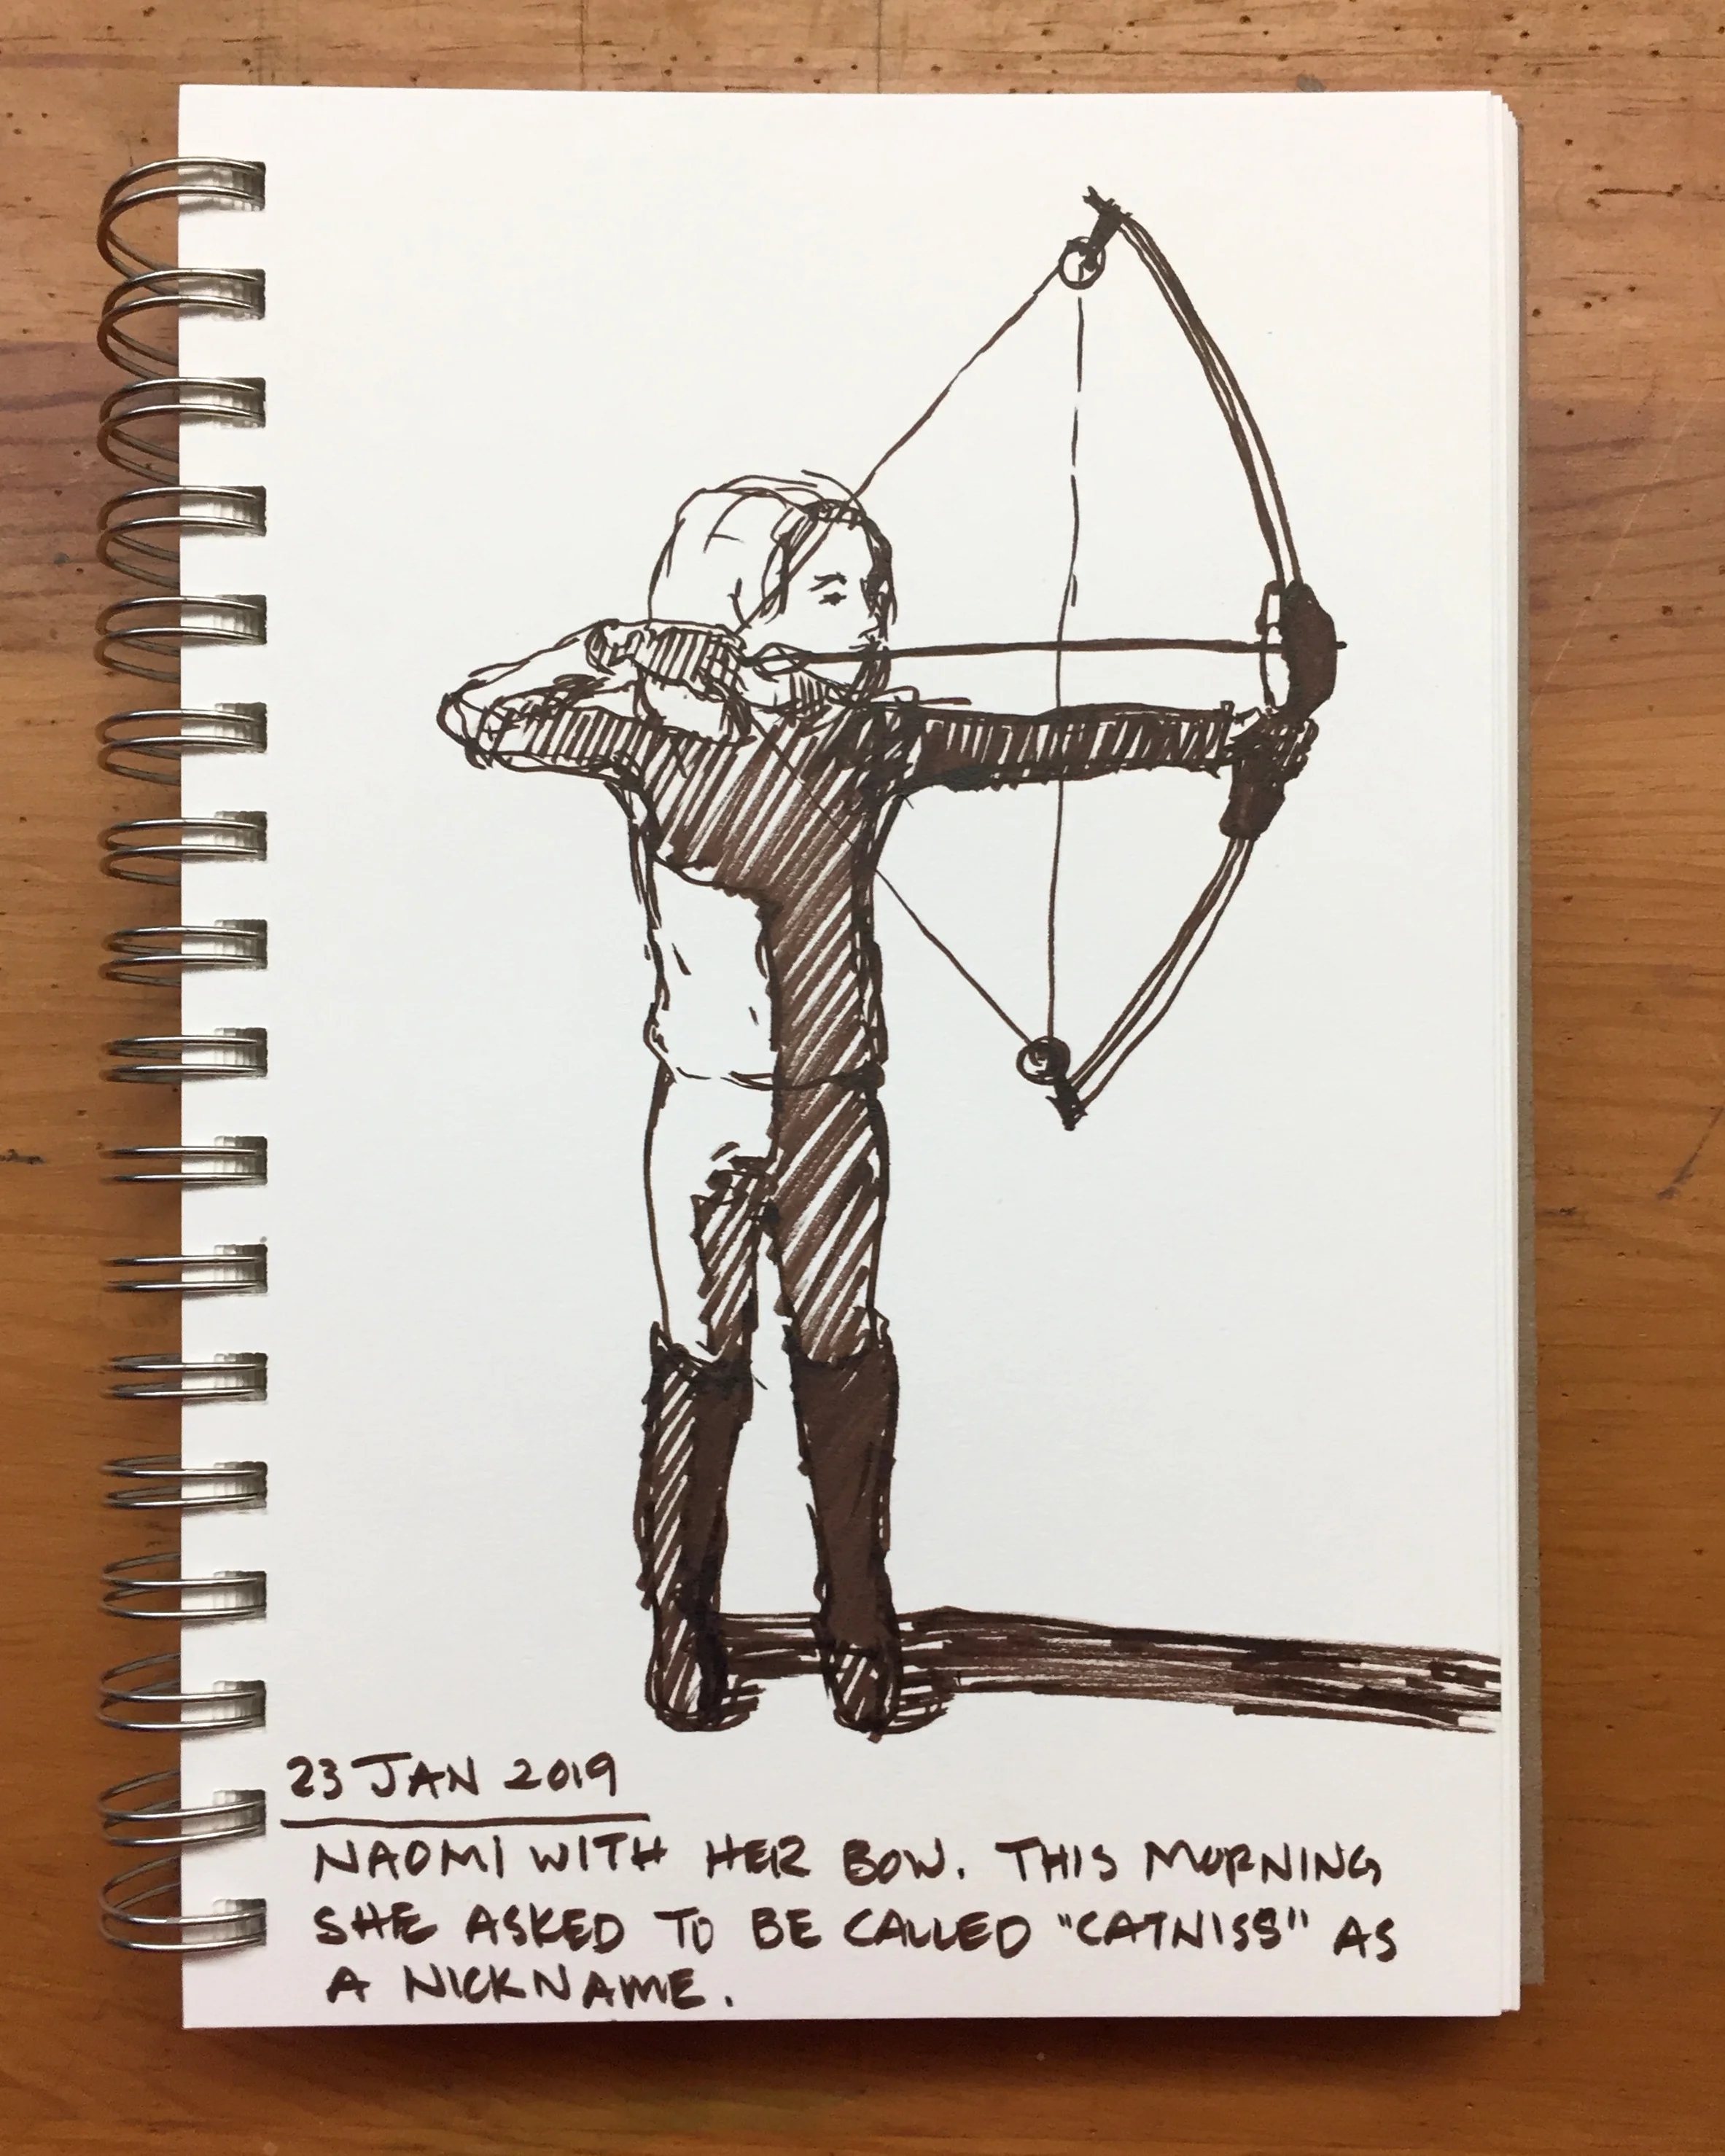 23 JAN 2019
NAOMI WITH HER BOW. THIS MORNING
SHE ASKED TO BE CALLED "CATNISS" AS
A NICKNAME.